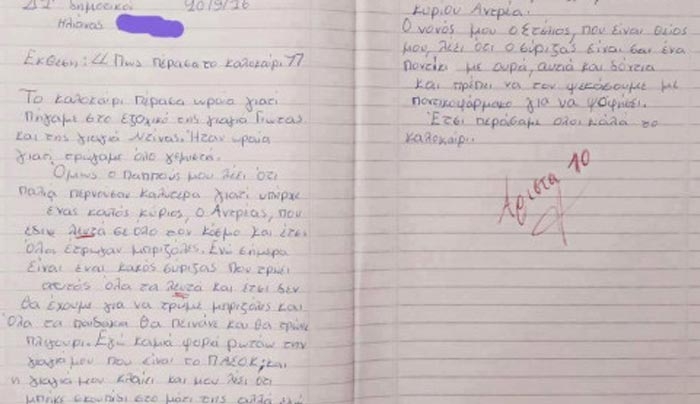 Δ1 Δημοτικού 20/9/16
Ηλιάνας
Έκθεση: "Πως πέρασα το καλοκαίρι"
Το καλοκαίρι πέρασα ωραία γιατί
Πήγαμε στο εξοχικό της γιαγιά Γιώτας
και της γιαγιά Ντίνας. Ήταν ωραία
γιατί τρώγαμε όλο γεμιστή.
Όμως ο παππούς μου λέει ότι
παλιά περνούσαν καλύτερα γιατί υπήρχε
ένας καλός κύριος, ο Αντρέας, που
έδινε λευτά σε όλο τον κόσμο και έτσι
όλοι έτρωγαν μπριζόλες. Ενώ σήμερα
είναι ένας κακός σύριζας που τρώει
αυτός όλα τα λευτά και έτσι δεν
θα έχουμε για να τρώμε μπριζόλες και
όλα τα παιδάκια θα πεινάνε και θα τρώνε
πλιγούρι. Εγώ καμιά φορά ρωτάω την
γιαγιά μου που είναι το ΠΑΣΟΚ; και
η γιαγιά μου κλαίει και μου λέει ότι
μπήκε σκουπίδι στο μάτι της αλλά εγώ
κύριου Αντρέα.
Ο νονός μου ο Στέλιος, που είναι θείος
μου, λέει ότι ο σύριζας είναι σαν ένα
ποντίκι με ουρά, αυτιά και δόντια
και πρέπει να τον ψεκάσουμε με
ποντικοφάρμακο για να ψοφήσει.
Έτσι περάσαμε όλοι καλά το
καλοκαίρι.
Άριστα 10